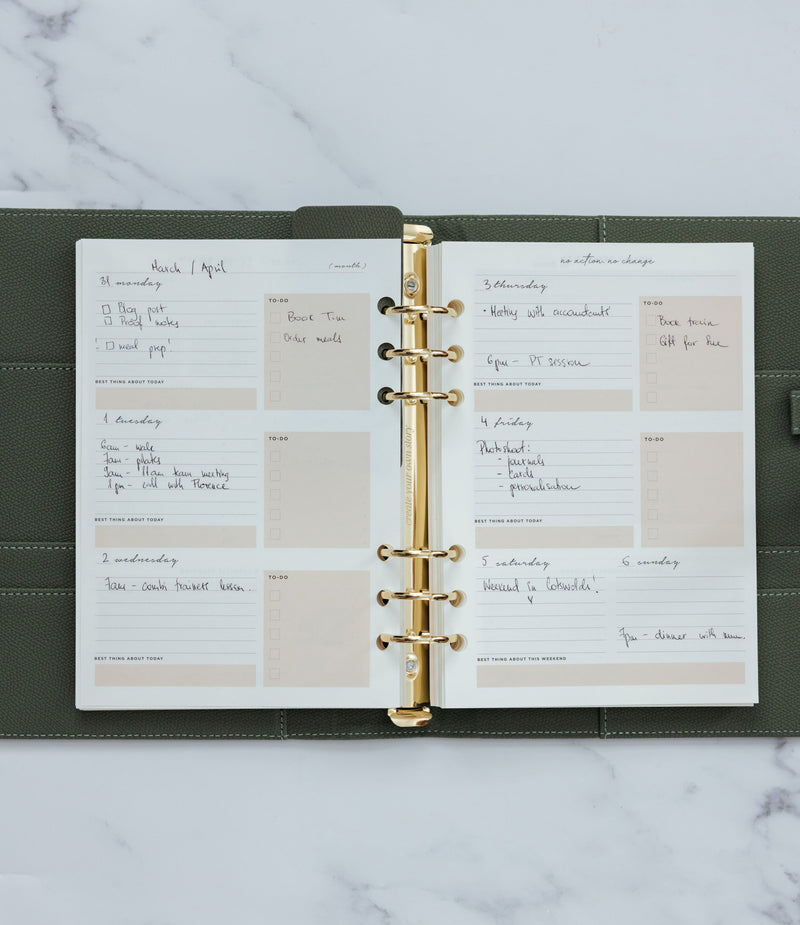 March / April
(month)
31 monday
Blog post
Proof notes
! meal prep!
TO-DO
Book Tim
Order meals
BEST THING ABOUT TODAY
1 tuesday
6am - walk
7am - photos
9am - 11am team meeting
1pm - call with Florence
TO-DO
BEST THING ABOUT TODAY
2 wednesday
7am - combi trainers lesson.
TO-DO
BEST THING ABOUT TODAY
create your own story
no action. no change
3 thursday
• Meeting with accountants
6pm - PT session
TO-DO
Book train
Gift for
BEST THING ABOUT TODAY
4 friday
Photoshoot:
- journals
- cards
- personalisation
TO-DO
BEST THING ABOUT TODAY
5 saturday
Weekend in Cotswolds!
6 sunday
7pm - dinner with mum.
BEST THING ABOUT THIS WEEKEND